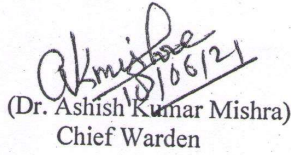 AKmishra
10/06/21
(Dr. Ashish Kumar Mishra)
Chief Warden